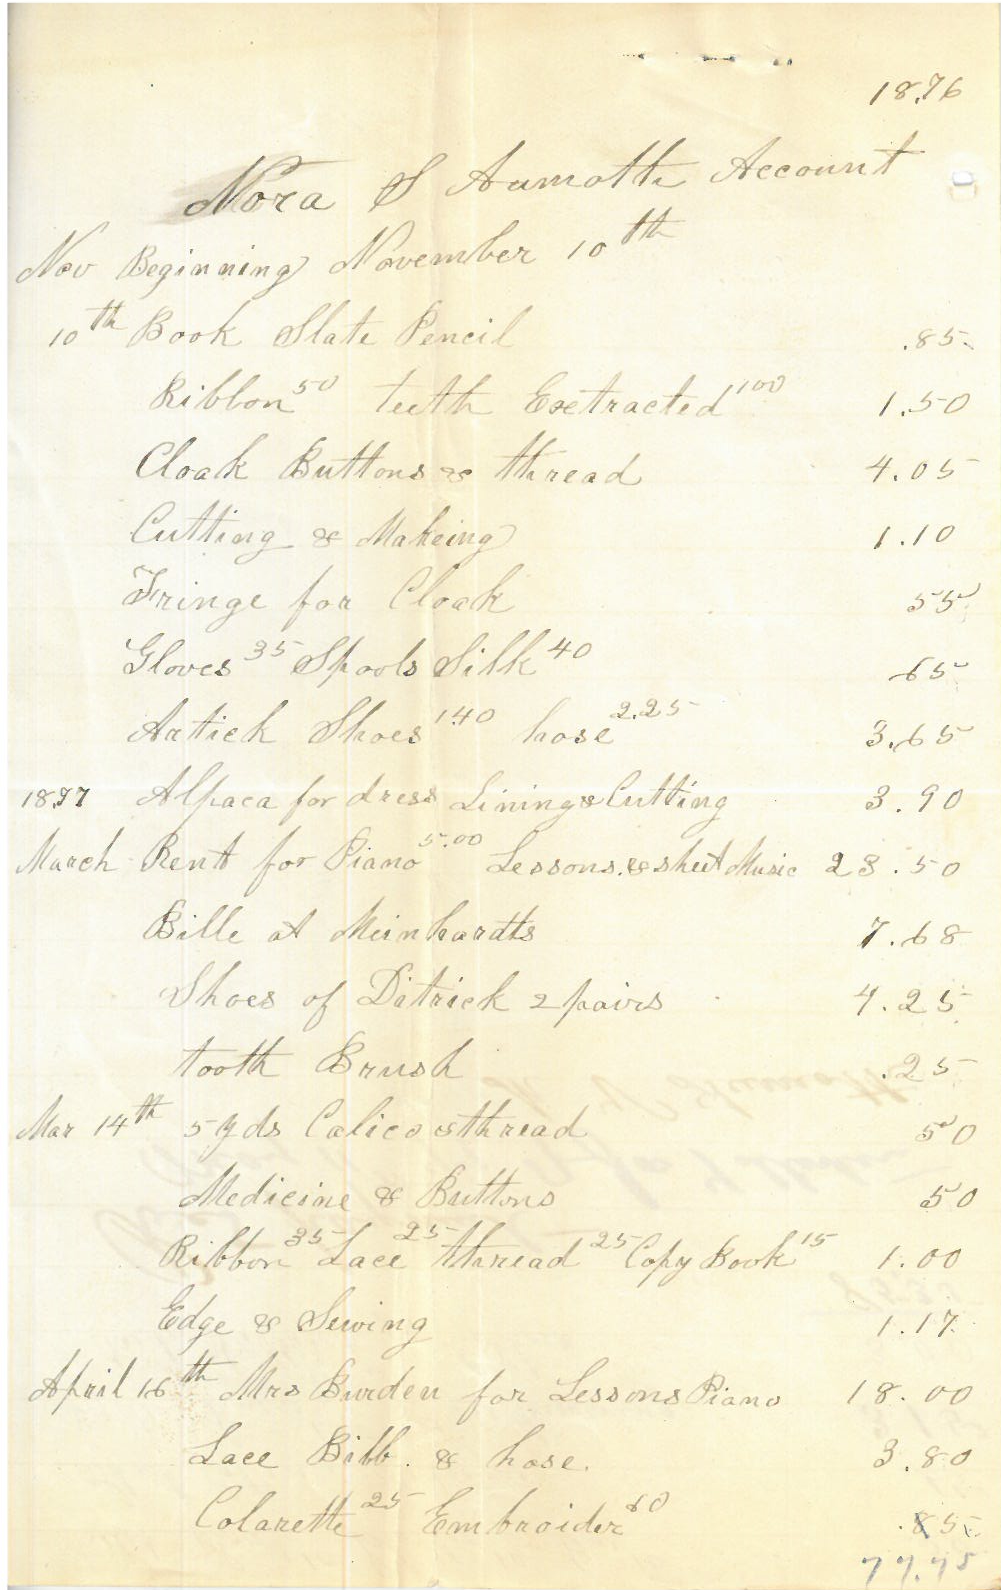 1876
Nora S Aumotte Account
Nov Beginning November 10th
10th Book Slate Pencil .85
Ribbon 50 teeth Exetracted 100 1.50
Cloak Buttons & thread 4.05
Cutting & Makeing 1.10
Fringe for Cloak 55
Gloves 35 Spools Silk 40 65
Artick Shoes 1.40 hose 2.25 3.65
1877 Alpaca for dress Lining & Cutting 3.90
March Rent for Piano 5.00 Lessons. & sheet Music 23.50
Bille at Meinhardts 7.68
Shoes of Ditrick 2 pairs 4.25
tooth Brush .25
Mar 14th 5 yds Calico & thread 50
Medicine & Buttons 50
Ribbon 35 Lace 25 thread 25 Copy Book 15 1.00
Edge & Sewing 1.17
April 16th Mrs Burden for Lessons Piano 18.00
Lace Bibb. & hose. 3.80
Colarette 25 Embroider 60 .85
77.75